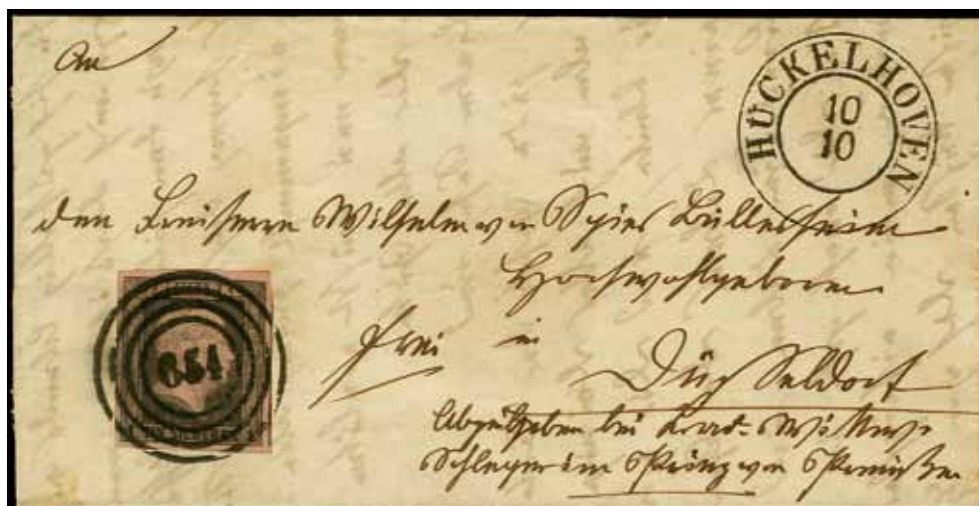 An
HÜCKELHOVEN
10
10
den Freiherrn Wilhelm von Spies Büllesheim
Hochwohlgeboren
frei in
654
Düsseldorf
Abzugeben bei
im Prinz von Preußen